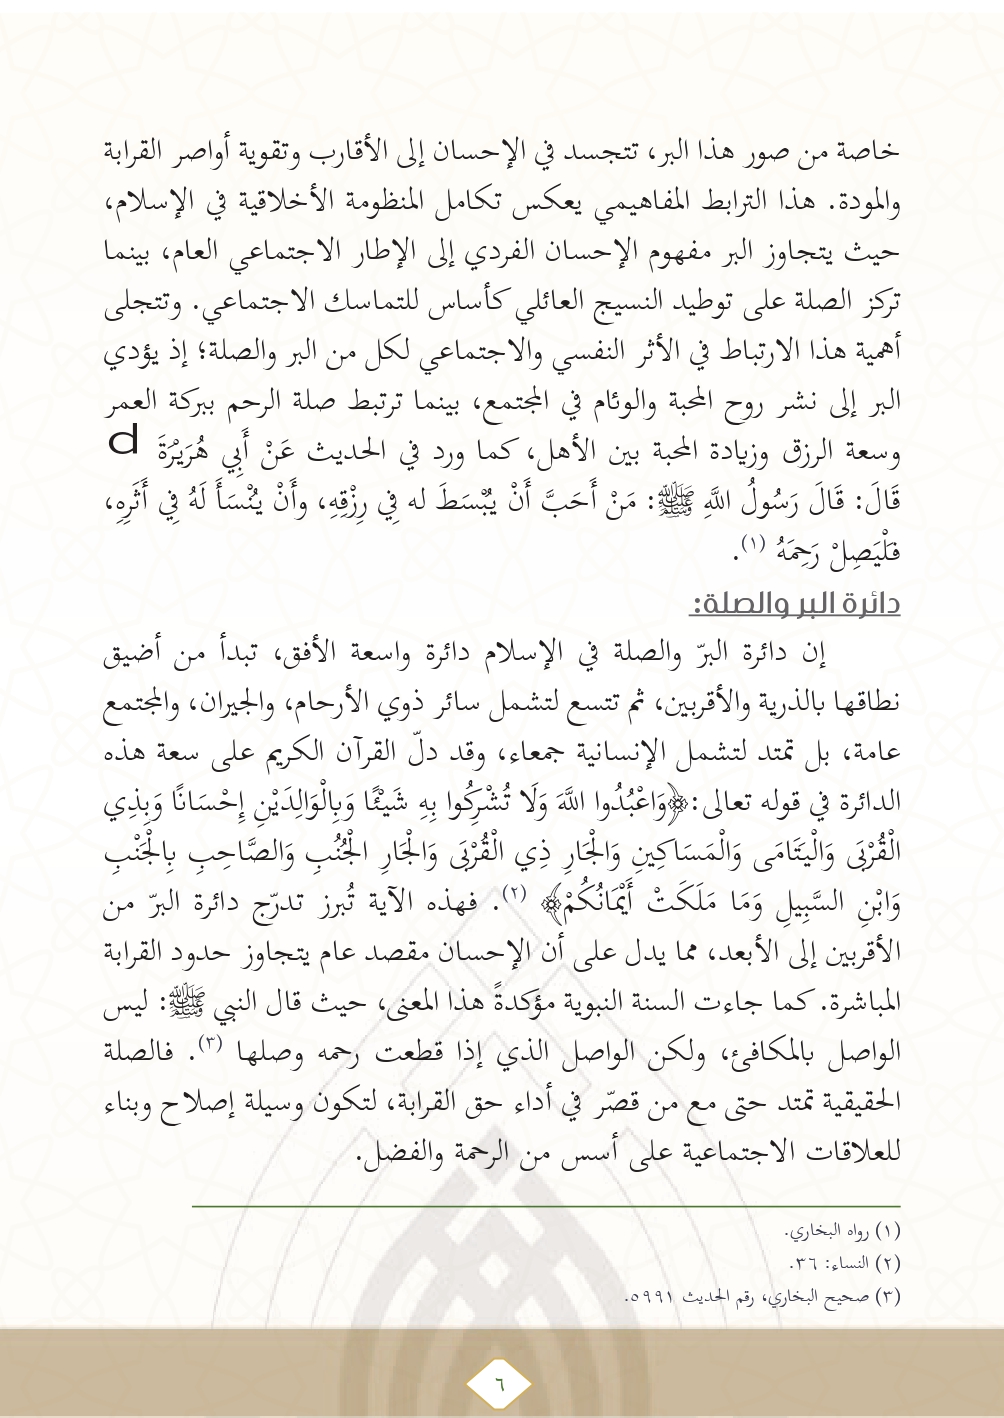 خاصة من صور هذا البر، تتجسد في الإحسان إلى الأقارب وتقوية أواصر القرابة
والمودة. هذا الترابط المفاهيمي يعكس تكامل المنظومة الأخلاقية في الإسلام،
حيث يتجاوز البر مفهوم الإحسان الفردي إلى الإطار الاجتماعي العام، بينما
تركز الصلة على توطيد النسيج العائلي كأساس للتماسك الاجتماعي. وتتجلى
أهمية هذا الارتباط في الأثر النفسي والاجتماعي لكل من البر والصلة؛ إذ يؤدي
البر إلى نشر روح المحبة والوئام في المجتمع، بينما ترتبط صلة الرحم ببركة العمر
وسعة الرزق وزيادة المحبة بين الأهل، كما ورد في الحديث عَنْ أَبِي هُرَيْرَةَ d
قَالَ: قَالَ رَسُولُ اللَّهِ ﷺ: مَنْ أَحَبَّ أَنْ يُبْسَطَ له فِي رِزْقِهِ، وأَنْ يُنْسَأَ لَهُ فِي أَثَرِهِ،
فَلْيَصِلْ رَحِمَهُ (١).
دائرة البر والصلة:
إن دائرة البرّ والصلة في الإسلام دائرة واسعة الأفق، تبدأ من أضيق
نطاقها بالذرية والأقربين، ثم تتسع لتشمل سائر ذوي الأرحام، والجيران، والمجتمع
عامة، بل تمتد لتشمل الإنسانية جمعاء، وقد دلّ القرآن الكريم على سعة هذه
الدائرة في قوله تعالى: ﴿وَاعْبُدُوا اللَّهَ وَلَا تُشْرِكُوا بِهِ شَيْئًا وَبِالْوَالِدَيْنِ إِحْسَانًا وَبِذِي
الْقُرْبَى وَالْيَتَامَى وَالْمَسَاكِينِ وَالْجَارِ ذِي الْقُرْبَى وَالْجَارِ الْجُنُبِ وَالصَّاحِبِ بِالْجَنْبِ
وَابْنِ السَّبِيلِ وَمَا مَلَكَتْ أَيْمَانُكُمْ﴾ (٢). فهذه الآية تُبرز تدرّج دائرة البرّ من
الأقربين إلى الأبعد، مما يدل على أن الإحسان مقصد عام يتجاوز حدود القرابة
المباشرة. كما جاءت السنة النبوية مؤكدةً هذا المعنى، حيث قال النبي ﷺ: ليس
الواصل بالمكافئ، ولكن الواصل الذي إذا قطعت رحمه وصلها (٣). فالصلة
الحقيقية تمتد حتى مع من قصّر في أداء حق القرابة، لتكون وسيلة إصلاح وبناء
للعلاقات الاجتماعية على أسس من الرحمة والفضل.
(١) رواه البخاري.
(٢) النساء: ٣٦.
(٣) صحيح البخاري، رقم الحديث ٥٩٩١.
٦